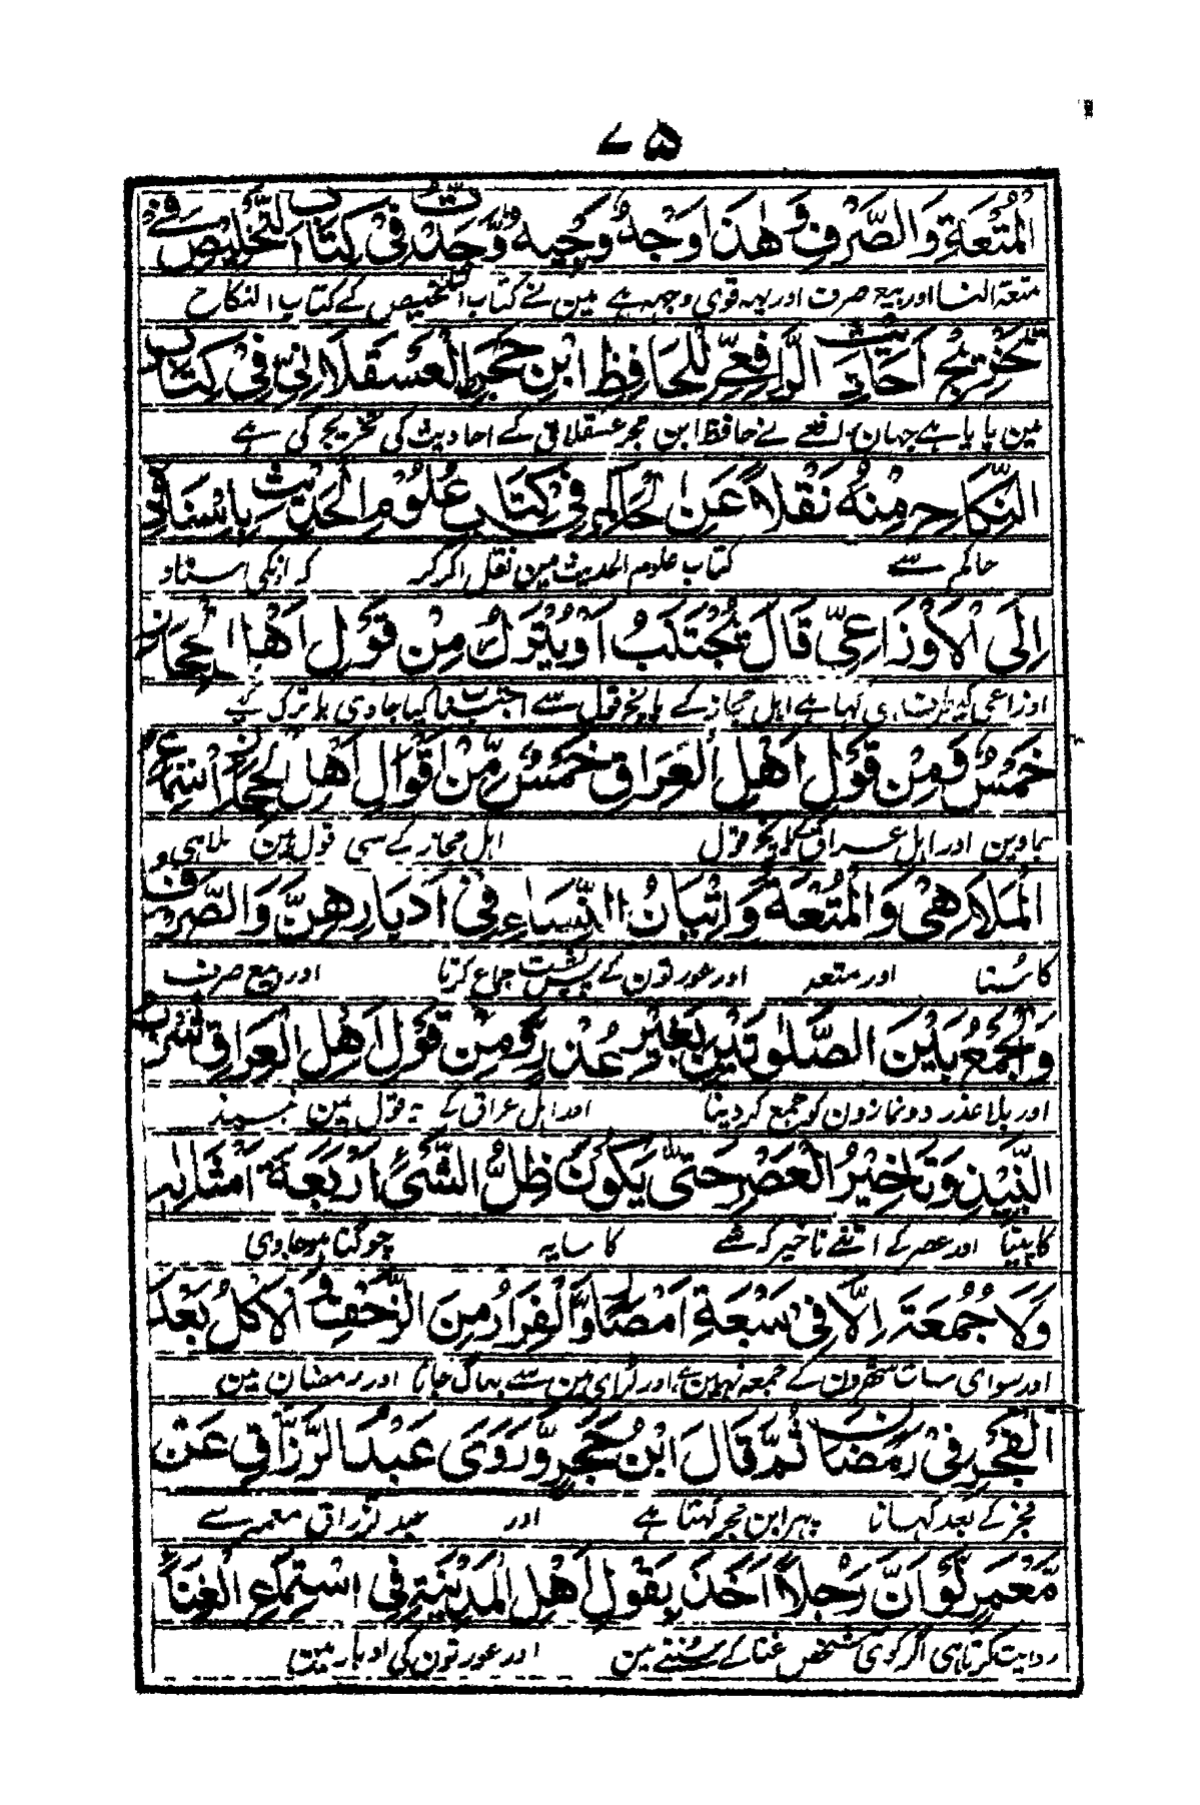 ۷۵
الْمُتْعَةِ وَالصَّرْفِ وَهٰذَا وَجْهٌ وَجِيهٌ وَّجَدْتُ فِي كِتَابِ التَّلْخِيصِ فِي
متعۃ النسا اور بیع صرف اور یہہ قوی وجہہ ہے مین نے کتاب التلخیص کے کتاب النکاح
تَخْرِيجِ اَحَادِيثِ الرَّافِعِيِّ لِلْحَافِظِ ابْنِ حَجَرِ الْعَسْقَلَانِيِّ فِي كِتَابِ
مین پایا ہے جہان رافعے نے حافظ ابن حجر عسقلانی کے احادیث کی تخریج کی ہے
النِّكَاحِ مِنْهُ نَقْلاً عَنِ الْحَاكِمِ فِي كِتَابِ عُلُومِ الْحَدِيثِ بِاِسْنَادِهِ
حاکم سے کتاب علوم الحدیث مین نقل کرکر کہ انکی اسناد
اِلَى الْاَوْزَاعِيِّ قَالَ يُجْتَنَبُ اَوْ يُتْرَكُ مِنْ قَوْلِ اَهْلِ الْحِجَازِ
اوزاعی کیطرف ہی کہا ہے اہل حجاز کے پانچ قول سے اجتناب کیا جاوی یا ترک کیے
خَمْسٌ وَمِنْ قَوْلِ اَهْلِ الْعِرَاقِ خَمْسٌ مِّنْ اَقْوَالِ اَهْلِ الْحِجَازِ اسْتِمَاعُ
جاوین اور اہل عراق کے پانچ قول اہل حجاز کے سی قول مین ملاہی
الْمَلَاهِيْ وَالْمُتْعَةُ وَاِتْيَانُ النِّسَاءِ فِي اَدْبَارِهِنَّ وَالصَّرْفُ
کا سننا اور متعہ اور عورتون کے پس پشت جماع کرنا اور بیع صرف
وَالْجَمْعُ بَيْنَ الصَّلٰوتَيْنِ بِغَيْرِ عُذْرٍ وَّمِنْ قَوْلِ اَهْلِ الْعِرَاقِ شُرْبُ
اور بلا عذر دو نمازون کو جمع کر دینا اور اہل عراق کے یہ قول مین نبیذ
النَّبِيْذِ وَتَاخِيْرُ الْعَصْرِ حَتّٰى يَكُوْنَ ظِلُّ الشَّيْءِ اَرْبَعَةَ اَمْثَالِهِ
کا پینا اور عصر کے اتنے تاخیر کہ شے کا سایہ چوگنا ہوجاوی
وَلَا جُمُعَةَ اِلَّا فِي سَبْعَةِ اَمْصَارٍ وَّالْفِرَارُ مِنَ الزَّحْفِ وَالْاَكْلُ بَعْدَ
اور سوای سات شہرون کے جمعہ نہین ہے اور لڑای مین سے بہاگ جانا اور رمضان مین
الْفَجْرِ فِي رَمَضَانَ ثُمَّ قَالَ ابْنُ حَجَرٍ وَّرَوَى عَبْدُ الرَّزَّاقِ عَنْ
فجر کے بعد کہانا پہر ابن حجر کہتا ہے اور عبد الرزاق معمر سے
مَّعْمَرٍ لَّوْ اَنَّ رَجُلاً اَخَذَ بِقَوْلِ اَهْلِ الْمَدِيْنَةِ فِي اسْتِمَاعِ الْغِنَاءِ
روایت کرتا ہی اگر کوی شخص غنا کے سننے مین اور عورتون کی ادبار مین